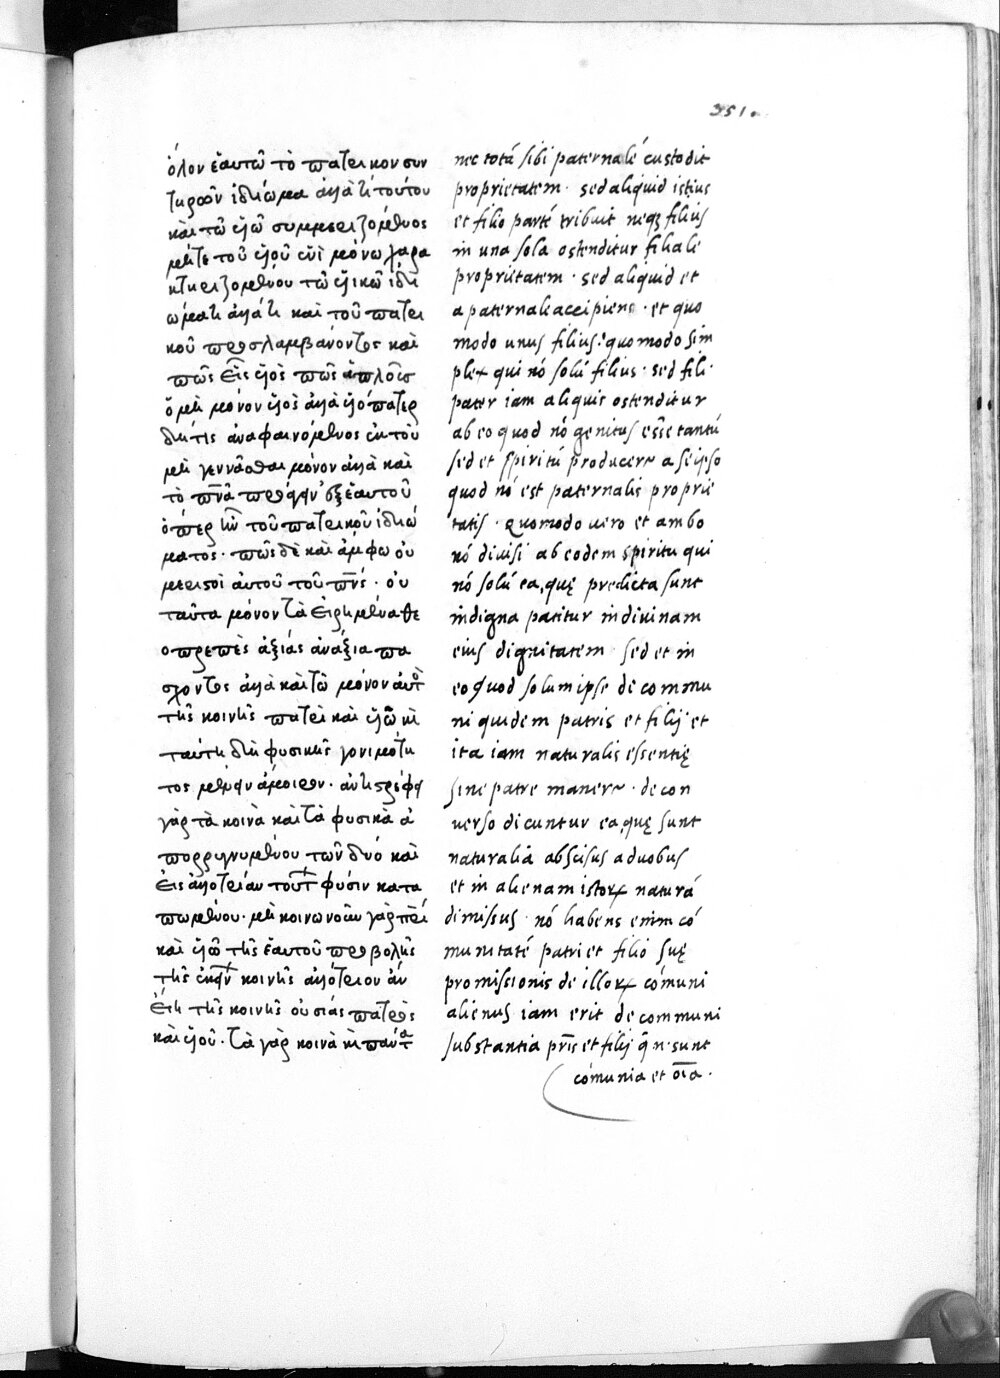 351.
ὅλον ἑαυτῶ τὸ πατρικὸν συν
τηροῦν ἰδίωμα ἀλλά τι τούτου
καὶ τῶ υἱῶ συμμεριζομένος
μήτε τοῦ υἱοῦ ἑνὶ μόνω χαρα
κτηριζομένου τῶ υἱικῶ ἰδι
ώματι ἀλλά τι καὶ τοῦ πατρι
κοῦ προσλαμβάνοντος καὶ
πῶς εἷς υἱὸς πῶς ἁπλοῦς
ὁ μὴ μόνον υἱὸς ἀλλὰ υἱοπάτερ
δή τις ἀναφαινόμενος ἐκ τοῦ
μὴ γεννᾶσθαι μόνον ἀλλὰ καὶ
τὸ πν̅α προάγειν ἐξ ἑαυτοῦ
ὅπερ ἦν τοῦ πατρικοῦ ἰδιώ
ματος· πῶς δὲ καὶ ἄμφω οὐ
μεριστοὶ αὐτοῦ τοῦ πν̅ς· οὐ
ταῦτα μόνον τὰ εἰρημένα θε
οπρεπὲς ἀξίας ἀνάξια πα
σχοντος ἀλλὰ καὶ τῶ μόνον αὐτὸ
τῆς κοινῆς πατρὶ καὶ υἱῶ κὶ
ταύτη δὴ φυσικῆς γονιμότη
τος μένειν ἄμοιρον· ἀντιστρέφει
γὰρ τὰ κοινὰ καὶ τὰ φυσικὰ ἀ
πορρηγνυμένου τῶν δύο καὶ
εἰς ἀλλοτρίαν τούτ φύσιν κατα
πωμένου· μὴ κοινωνοῦν γὰρ πρὶ
καὶ υἱῶ τῆς ἑαυτοῦ προβολῆς
τῆς ἐκείν κοινῆς ἀλλότριον ἂν
εἴη τῆς κοινῆς οὐσίας πατρὸς
καὶ υἱοῦ· τὰ γὰρ κοινὰ κὶ πάντα
nec totá sibi paternalé custodit
proprietatem · sed aliquid istius
et filio parté tribuit neq; filius
in una sola ostenditur filiale
proprietatem · sed aliquid et
a paternale accipiens · et quo
modo unus filius? quomodo sim
plex qui nó solú filius · sed fili·
pater iam aliquis ostenditur
ab eo quod nó genitus esse tantú
sed et spiritú producere a seipso
quod nó est paternalis proprie
tatis · quomodo vero et ambo
nó divisi ab eodem spiritu qui
nó solú ea, quę predicta sunt
indigna patitur in divinam
eius dignitatem sed et in
eo quod solum ipse de commu
ni quidem patris et filij et
ita iam naturalis essentię
sine patre manere · de con
verso dicuntur ea, quę sunt
naturalia abscisus a duobus
et in alienam istorx naturá
dimissus · nó habens enim có
munitaté patri et filio suę
promissionis de illorx cómuni
alienus iam erit de communi
substantia pr̅is et filij q̅ n·sunt
cómunia et oi̅a ·